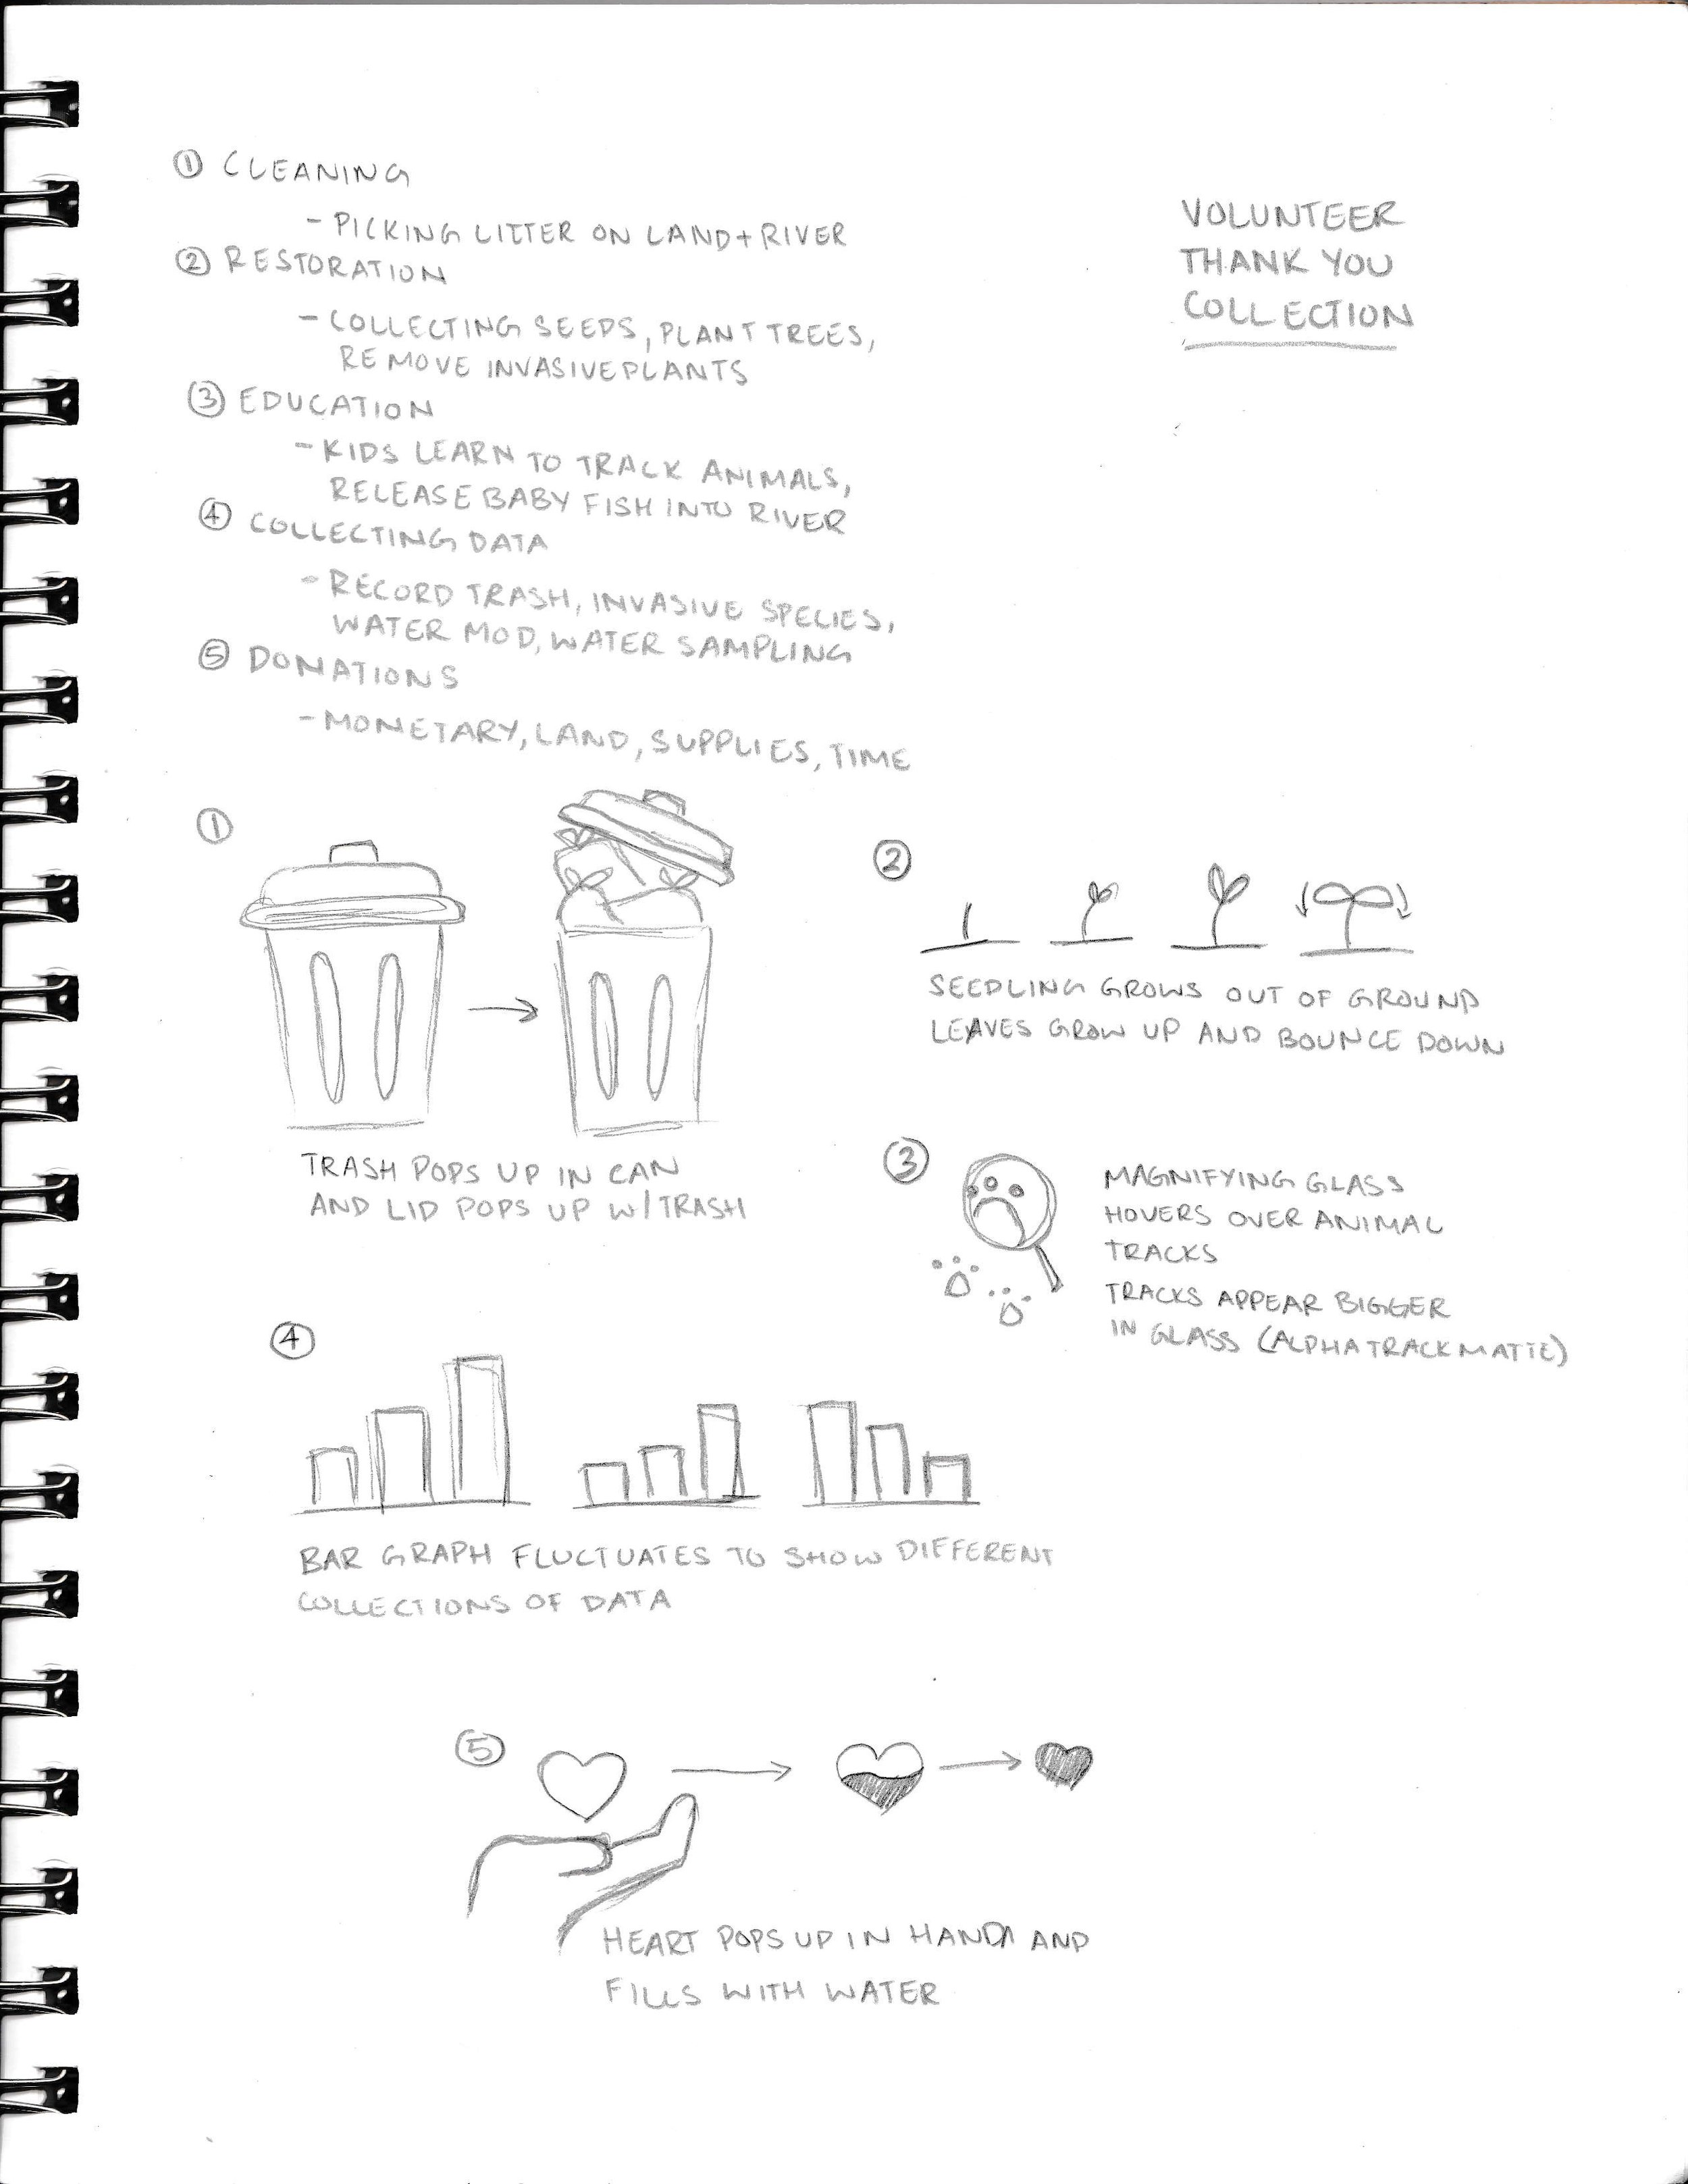 ① CLEANING
- PICKING LITTER ON LAND + RIVER
② RESTORATION
- COLLECTING SEEDS, PLANT TREES,
REMOVE INVASIVE PLANTS
③ EDUCATION
- KIDS LEARN TO TRACK ANIMALS,
RELEASE BABY FISH INTO RIVER
④ COLLECTING DATA
- RECORD TRASH, INVASIVE SPECIES,
WATER MOD, WATER SAMPLING
⑤ DONATIONS
- MONETARY, LAND, SUPPLIES, TIME
VOLUNTEER
THANK YOU
COLLECTION
①
TRASH POPS UP IN CAN
AND LID POPS UP W/ TRASH
②
SEEDLING GROWS OUT OF GROUND
LEAVES GROW UP AND BOUNCE DOWN
③
MAGNIFYING GLASS
HOVERS OVER ANIMAL
TRACKS
TRACKS APPEAR BIGGER
IN GLASS (ALPHA TRACK MATTE)
④
BAR GRAPH FLUCTUATES TO SHOW DIFFERENT
COLLECTIONS OF DATA
⑤
HEART POPS UP IN HAND AND
FILLS WITH WATER